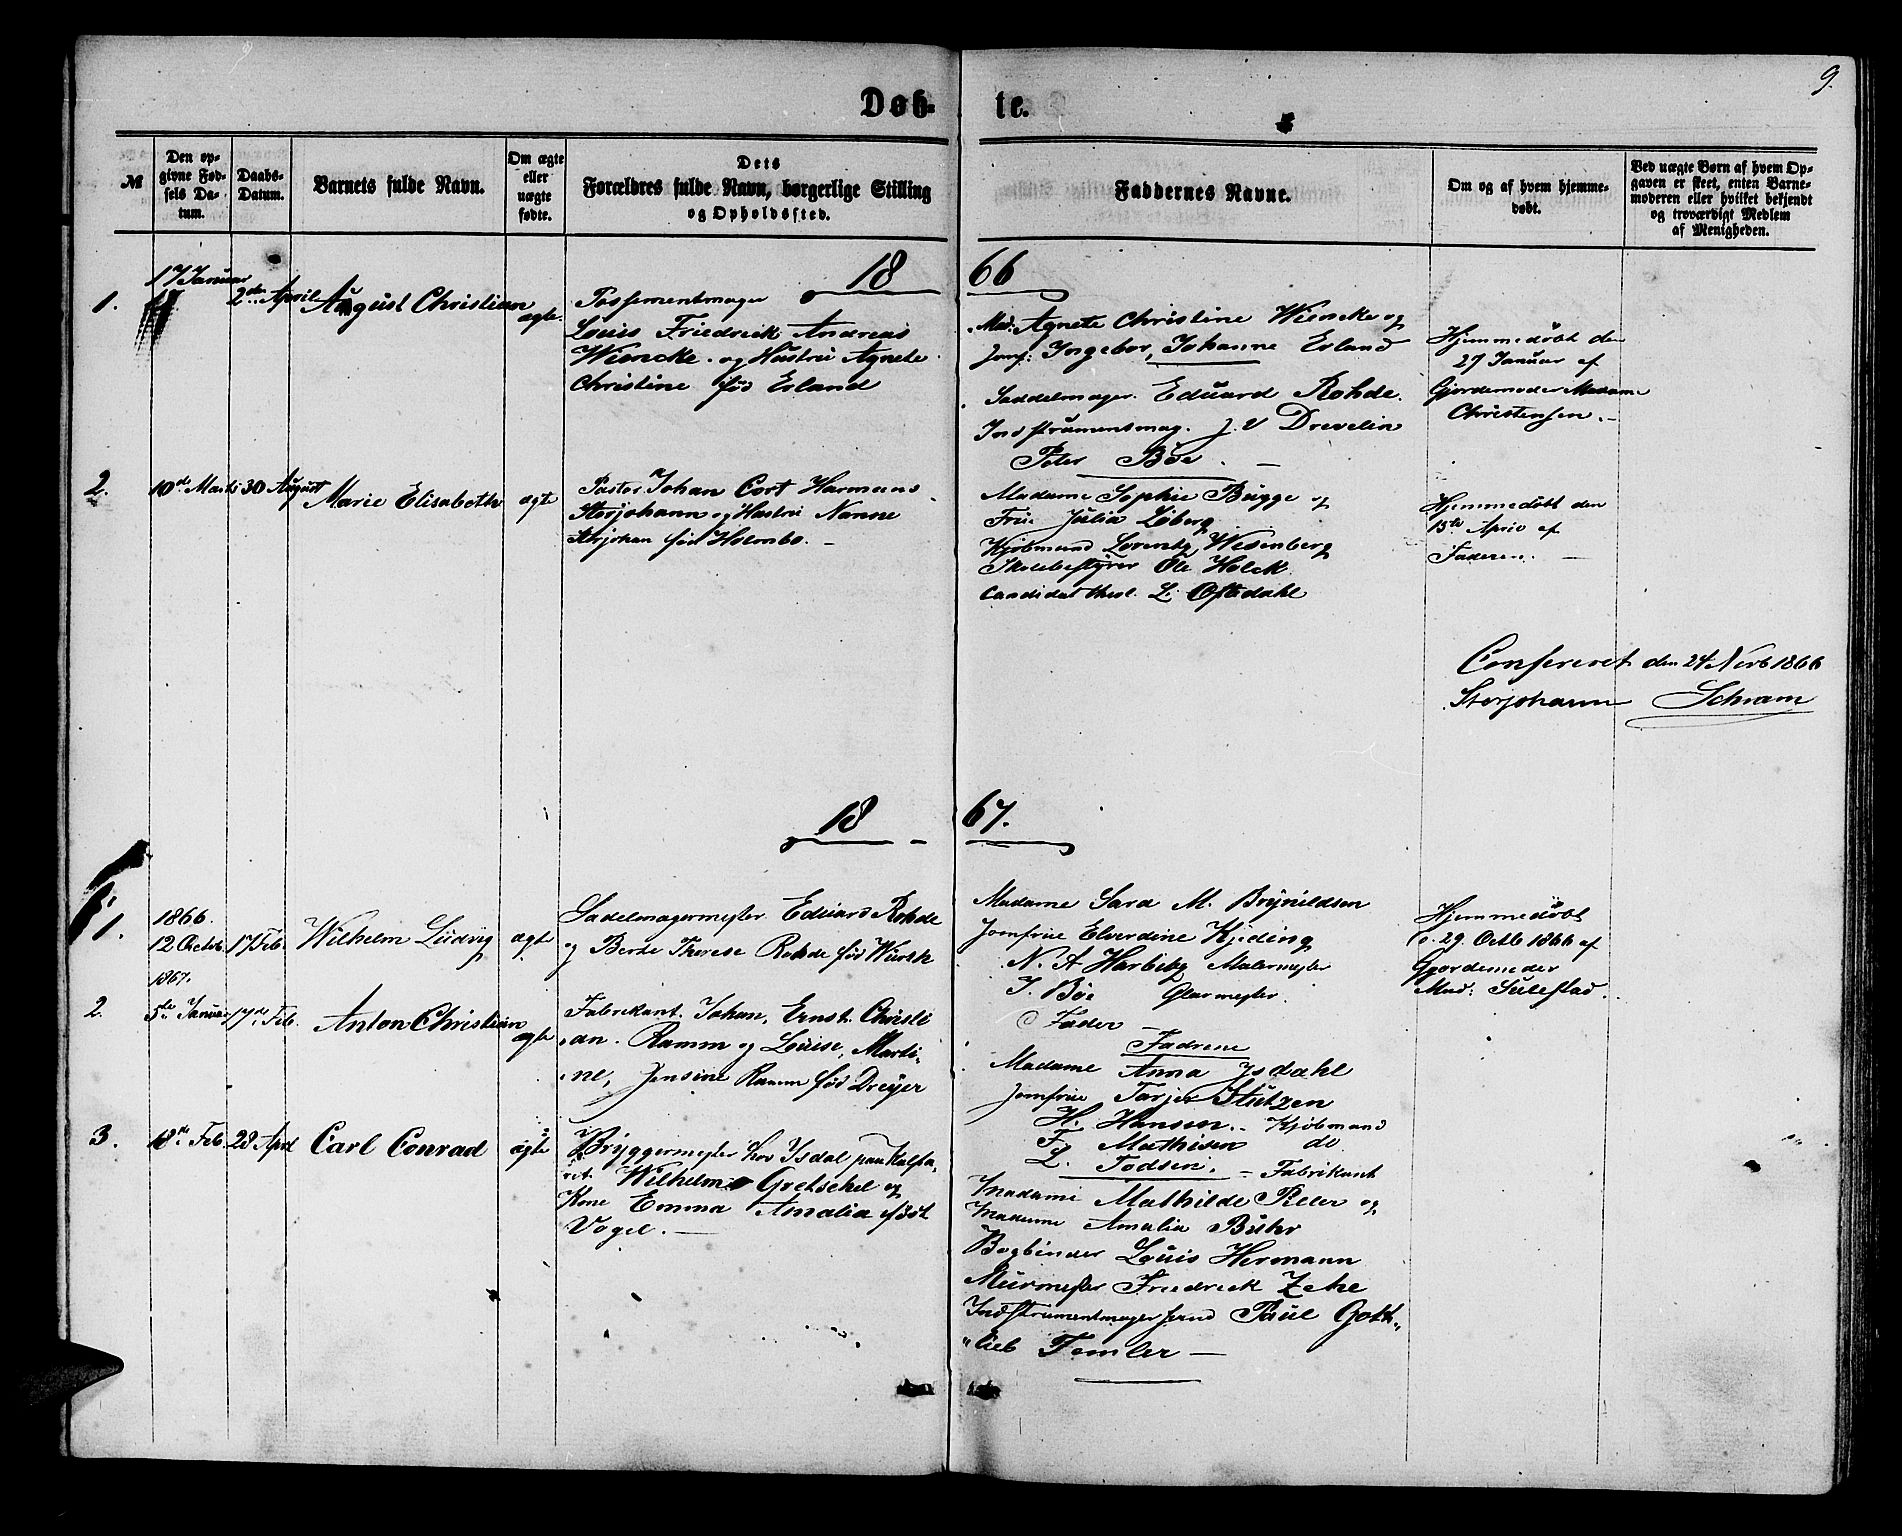 9.
Døb- te.
№
Den op-
givne Fød-
sels Da-
tum.
Daabs-
Datum.
Barnets fulde Navn.
Om ægte
eller
uægte
fødte.
Dets
Forældres fulde Navn, borgerlige Stilling
og Opholdssted.
Faddernes Navne.
Om og af hvem hjemme-
døbt.
Ved uægte Børn af hvem Op-
gaven er skeet, enten Barne-
moderen eller hvilket bekjendt
og troværdigt Medlem
af Menigheden.
18 66
1.
17 Januar
2den April
August Christian
ægte.
Possementmager
Louis Friedrick Andreas
Wiencke. og Hustru Agnete
Christine fød Erland
Mad: Agnete Christine Wiencke og
Jomf: Ingebor, Johanne Erland
Saddelmager. Eduard Rohde.
Indstrumentmag. J. V Drevelin
Peter Bøe. —
Hjemmedøbt den
27 Januar af
Gjordemoder Madame
Christensen. —
2.
10de Marts
30 August
Marie Elisabeth
ægte
Pastor Johan Cort Harmens
Storjohann og Hustru Nanne
Storjohan fød Holmbo. —
Madame Sophie Bugge og
Frue Julia Løberg
Kjøbmand Lorentz Wesenberg
Skolebestyrer Ole Holck
Candidat theol. L. Oftedahl
Hjemmedøbt den
15de April af
Faderen. —
Confereret den 24 Novb 1866
Storjohann Schram
18 67.
1.
1866.
12 Octob.
17 Feb.
Wilhelm Ludvig
ægte
Sadelmagermester Eduard Rohde
og Berte Therese Rohde fød Wursk
Madame Sara M. Brynildsen
Jomfrue Elverdine Kjeding
N. A Harbitz Malermester
J. Bøe Glarmester.
Fader —
Hjemmedøbt
d. 29. Octb 1866 af
Gjordemoder
Mad: Sulestad.
2.
1867.
5te Januar
17de Feb.
Anton Christian
ægte
Fabrikant. Johan, Ernst. Christi
an. Ramm og Louise, Marti-
ne, Jensine Ramm fød Dreyer
Fadrene
Madame Anna Isdahl
Jomfrue Tarjer Stutzen
H. Hansen. Kjøbmand
F. Mathisen do
L. Todsen. — Fabrikant
3.
18de Feb.
28 April
Carl Conrad
ægte
Bryggermester hos Isdal paa Kalfa-
ret. Wilhelm Gretschel og
Kone Emma Amalia født
Vogel. —
Madame Mathilde Peter og
Madame Amalia Buhr
Bogbinder Louis Hermann
Murmester Friedrick Zehe
Indstrumentmagersvend Paul Gott„
„lieb Temler —